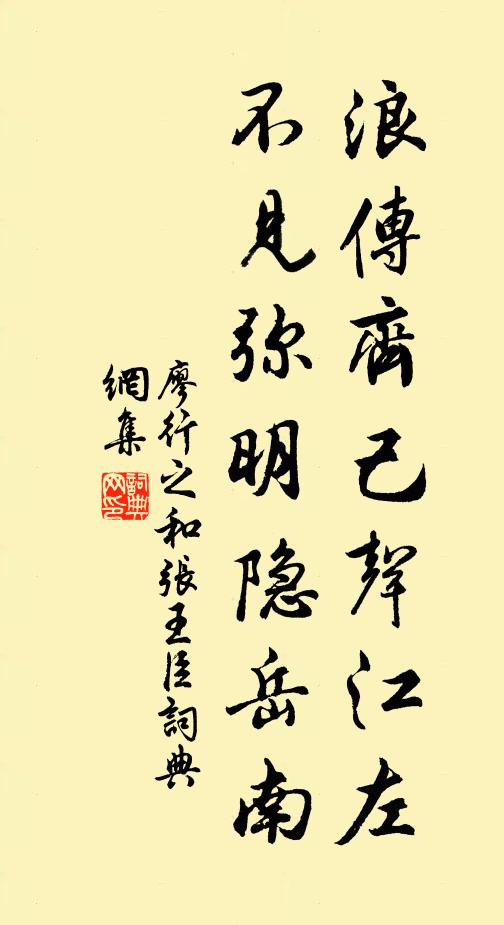 浪傳齊己聲江左
不見弥明隐岳南
廖行之和張王臣詞典
網集
詞典網印